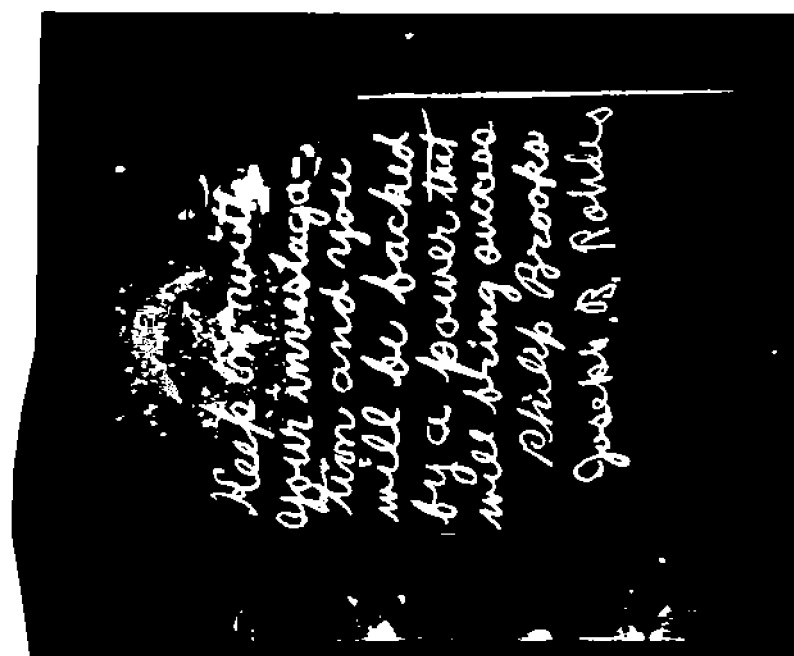 Keep on with
your investaga-
tion and you
will be backed
by a power that
will bring success
Philip Brooks
Joseph. B.